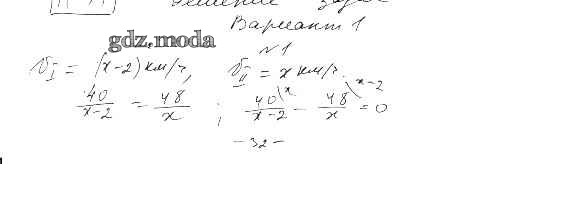 решение задач
Вариант 1
gdz.moda
N 1
V_I = (x-2) км/ч, V_II = x км/ч.
40/(x-2) = 48/x ; 40\x/(x-2) - 48\x-2/x = 0
- 32 -